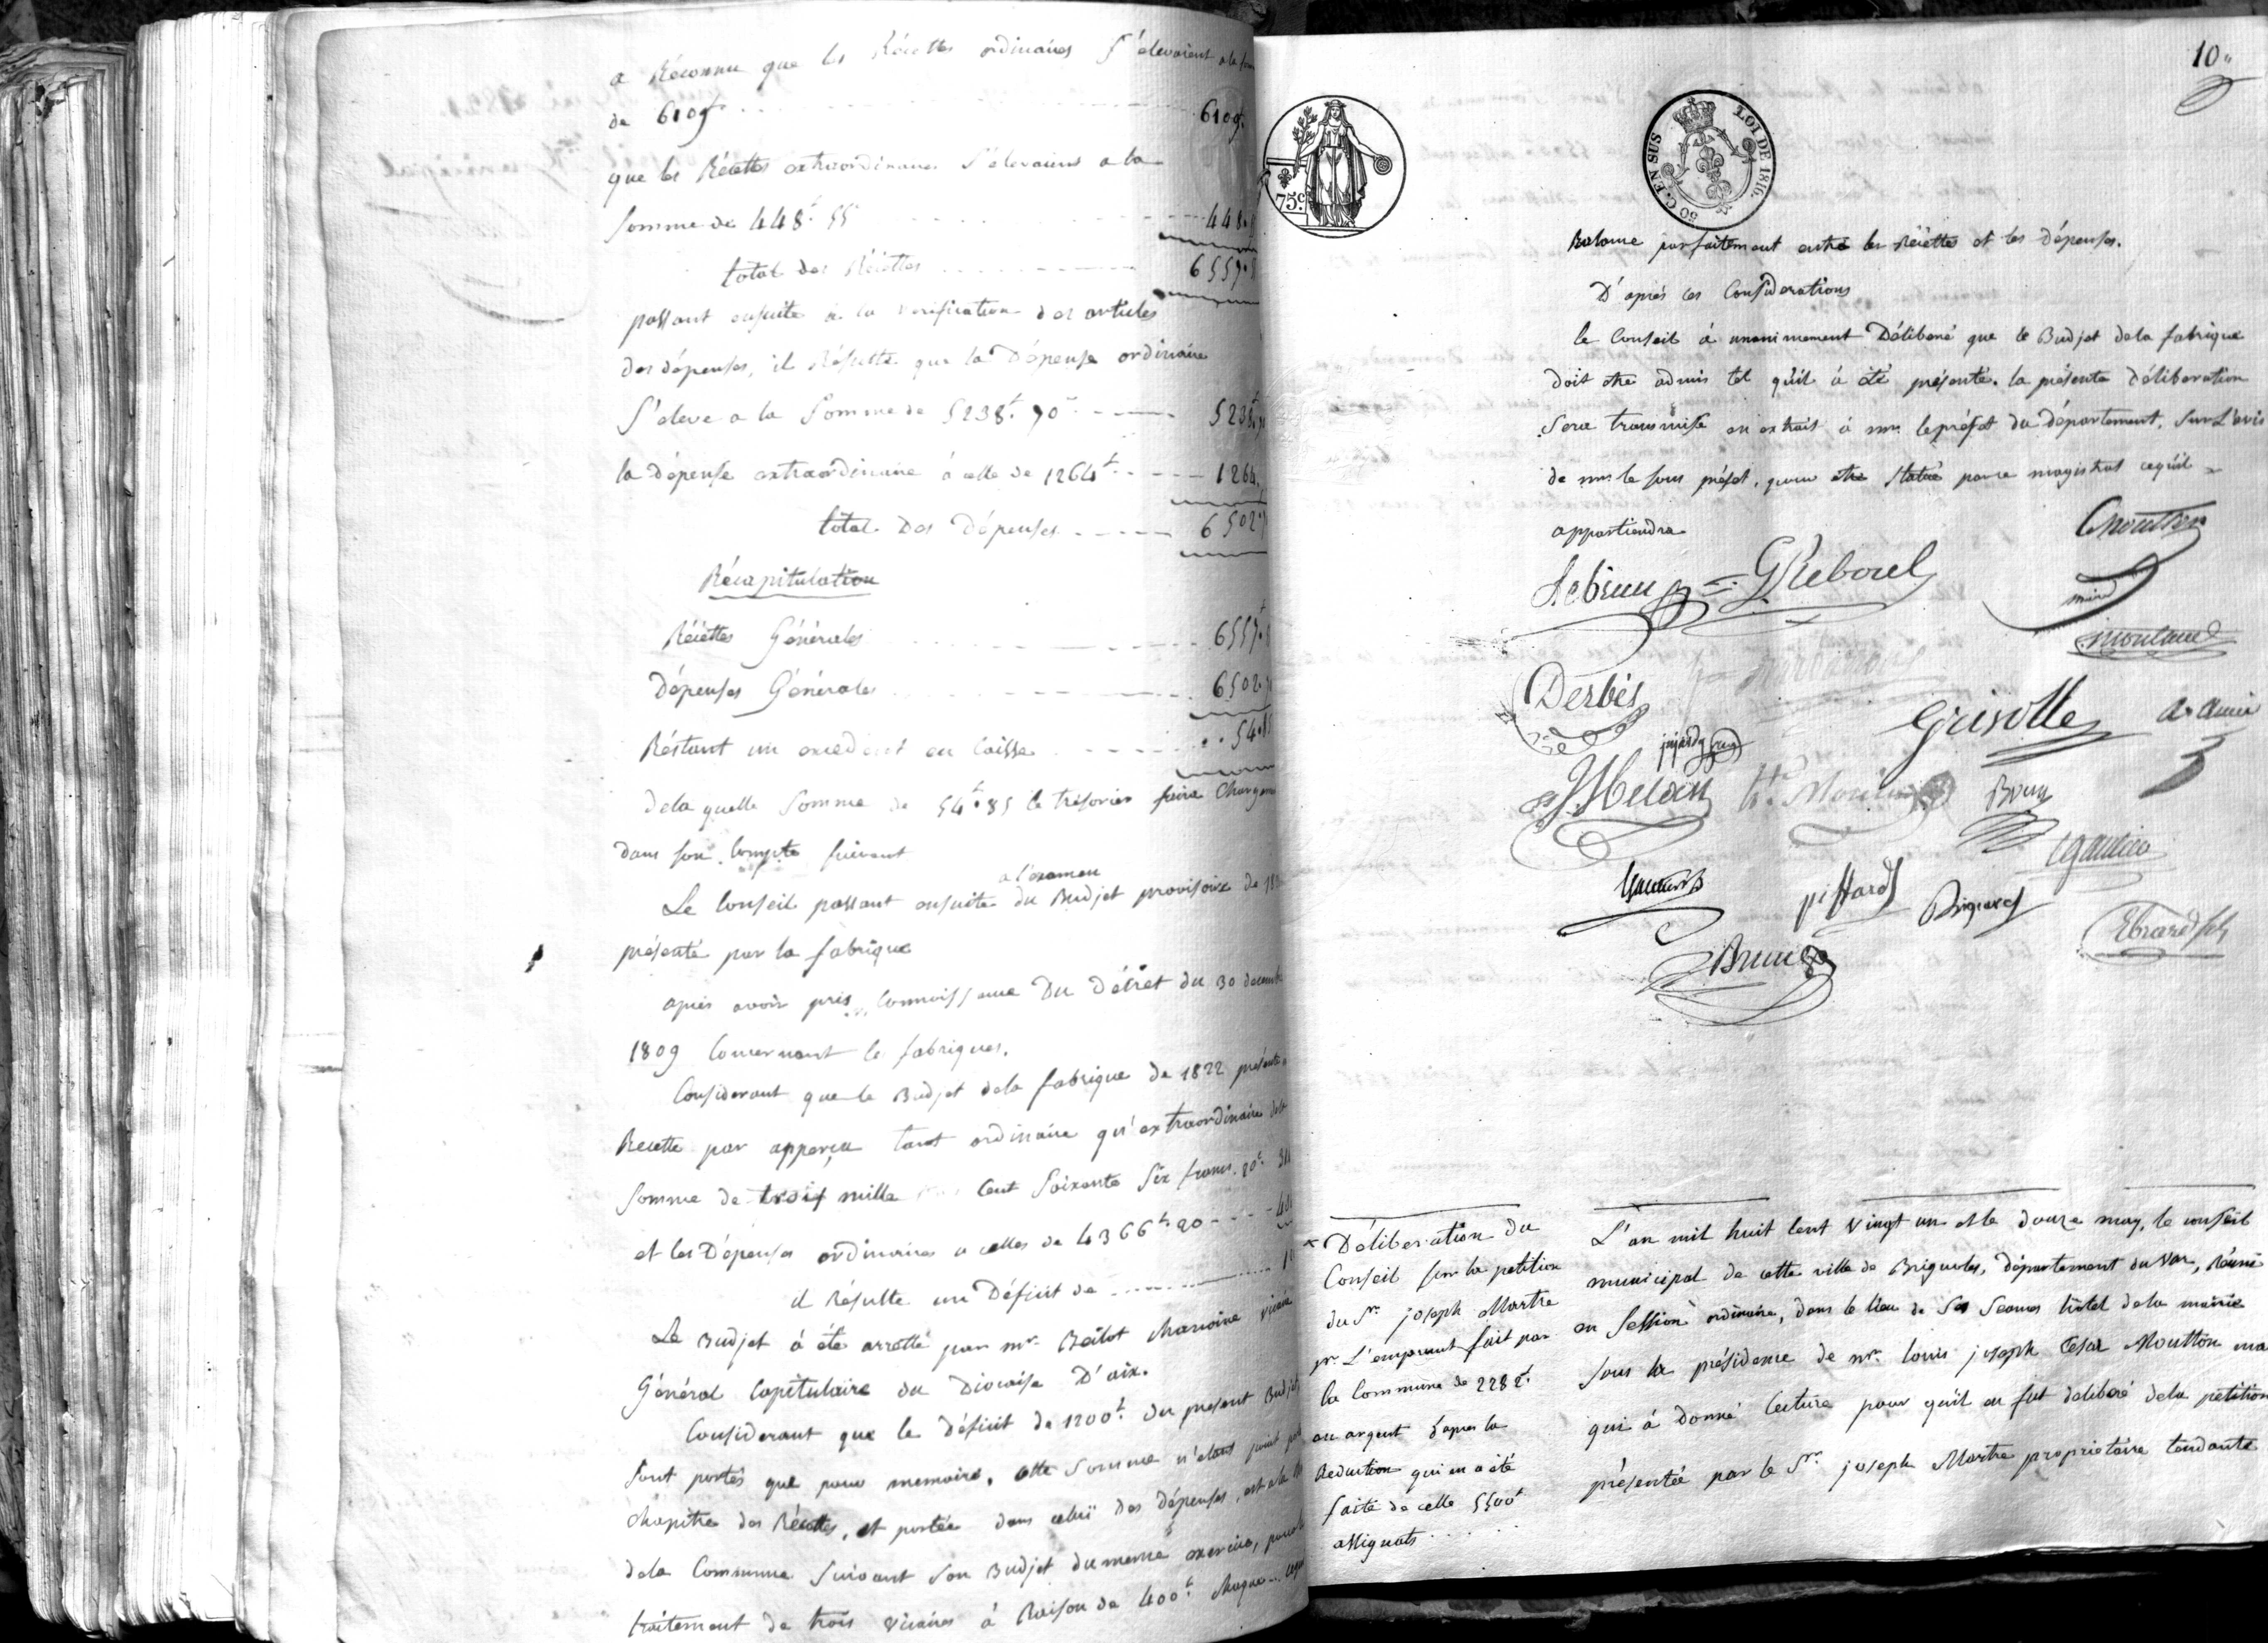 a Réconnu que les Récettes ordinaires s'elevaient a la
de 6109f 6109.
que les Récettes extraordinaires s'elevaient a la
somme de 448f 55 448.
total des Récettes 6557.
passant ensuite a la verification des articles
des dépenses, il Résulte que la Dépense ordinaire
s'eleve a la somme de 5238f. 70c 5238.
la dépense extraordinaire à celle de 1264f 1264.
total Des Dépenses 6502.
Récapitulation
Récettes Générales 6557.
Dépenses Générales 6502.
Réstant un excedent en Caisse 54.
dela quelle somme de 54f.85 le trésorier faira
dans son Compte suivant
a l'examen
Le Conseil passant ensuite du Budjet provisoire de
présenté par la fabrique
après avoir pris Connoissance Du Décret du 30
1809 Concernant les fabriques.
Considerant que le Budjet dela fabrique de 1822 présente
Recette par apperçu tant ordinaire qu'extraordinaire
somme de trois mille Cent Soixante Six francs. 80c.
et les Dépenses ordinaires a celles de 4366f.20
il Résulte un Déficit de
Le Budjet à été arretté par mr. Beilot Chanoine
Général Capitulaire du Diocaise D'aix.
Considerant que le Déficit de 1200f. du present
sont portés que pour memoire, cette somme n'etant point
chapitre des Récettes, et portée dans celui des dépenses, est a la
dela Commune suivant son Budjet du meme exercice, pour
traitement de trois Vicaires à Raison de 400f. chaque
10
75c.
50 C. EN SUS LOI DE 1816.
Balance parfaitement entre les Récettes et les dépenses.
D'après ces Considerations
le Conseil à unanimement Délibéré que le Budjet dela fabrique
doit etre admis tel qu'il à été présenté. la présente Déliberation
sera transmise en extrait à mr. le préfet du département, sur L'avis
de mr. le sous préfet, pour etre statué par ce magistrat ce qu'il
appartiendra
Moutton
Lebrun G Reboul
maire
montaud
Derbès
Grisolle
Brun
piffard
Brun
* Déliberation du
Conseil sur la petition
du Sr. joseph Martre
pr. L'emprunt fait par
la Commune de 2282f.
en argent d'apres la
Reduction qui en a été
faite de celle 5500f
assignats
L'an mil huit Cent Vingt un et le douze may, le conseil
municipal de cette ville de Brignoles, département du Var, Réuni
en Session ordinaire, dans le lieu de ses seances hôtel dela mairie
sous la présidence de mr. louis joseph César Moutton
qui à donné lecture pour qu'il en fut deliberé dela pétition
présentée par le Sr. joseph Martre propriétaire tendante